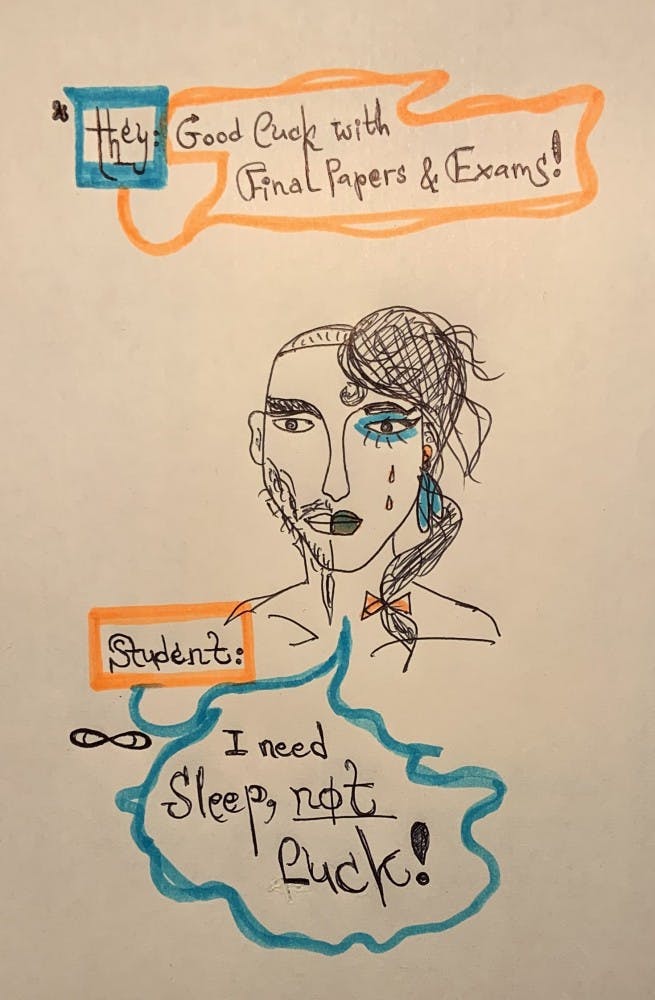 They: Good Luck with
Final Papers & Exams!
Student:
I need
Sleep, not
Luck!